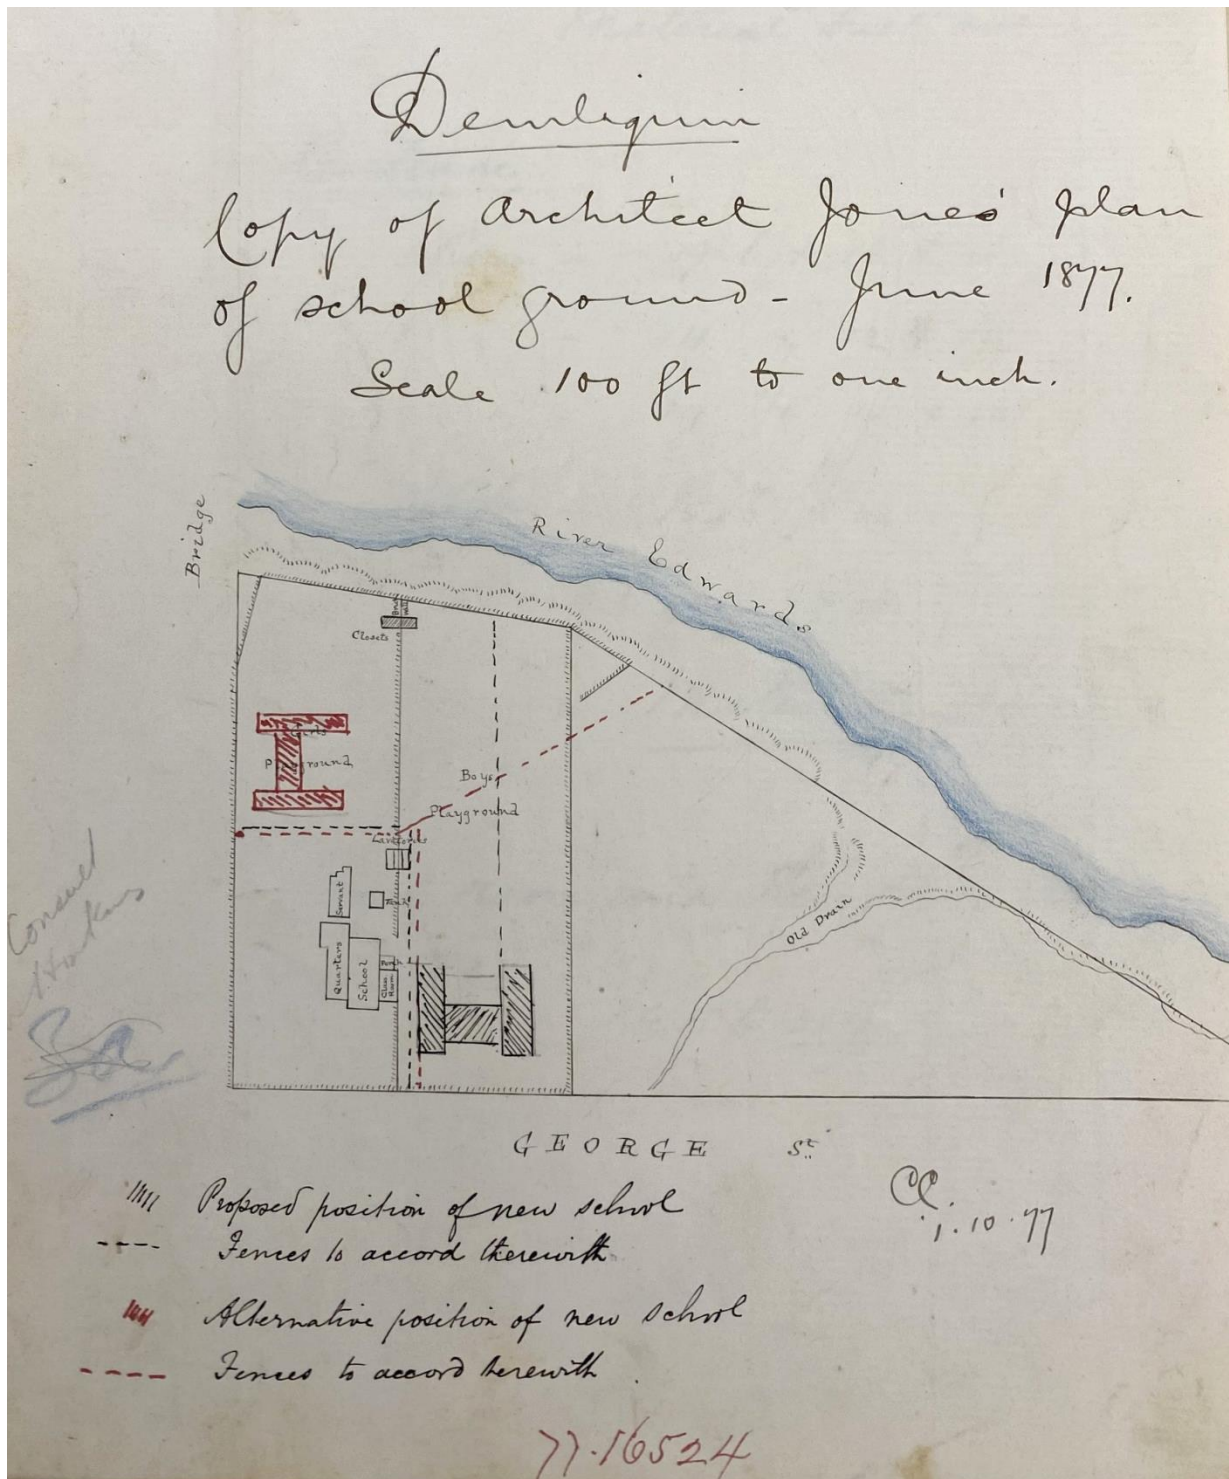 Deniliquin
Copy of Architect Jones' plan
of school ground - June 1877.
Scale 100 ft to one inch.
Bridge
River Edwards
Closets
Girls
Playground
Boys
Playground
Lavatories
Servant
Tank
Quarters
School
Class Room
Old Drain
GEORGE St.
Proposed position of new school
Fences to accord therewith
CC.
1.10.77
Alternative position of new school
Fences to accord therewith
77.16524
Consult